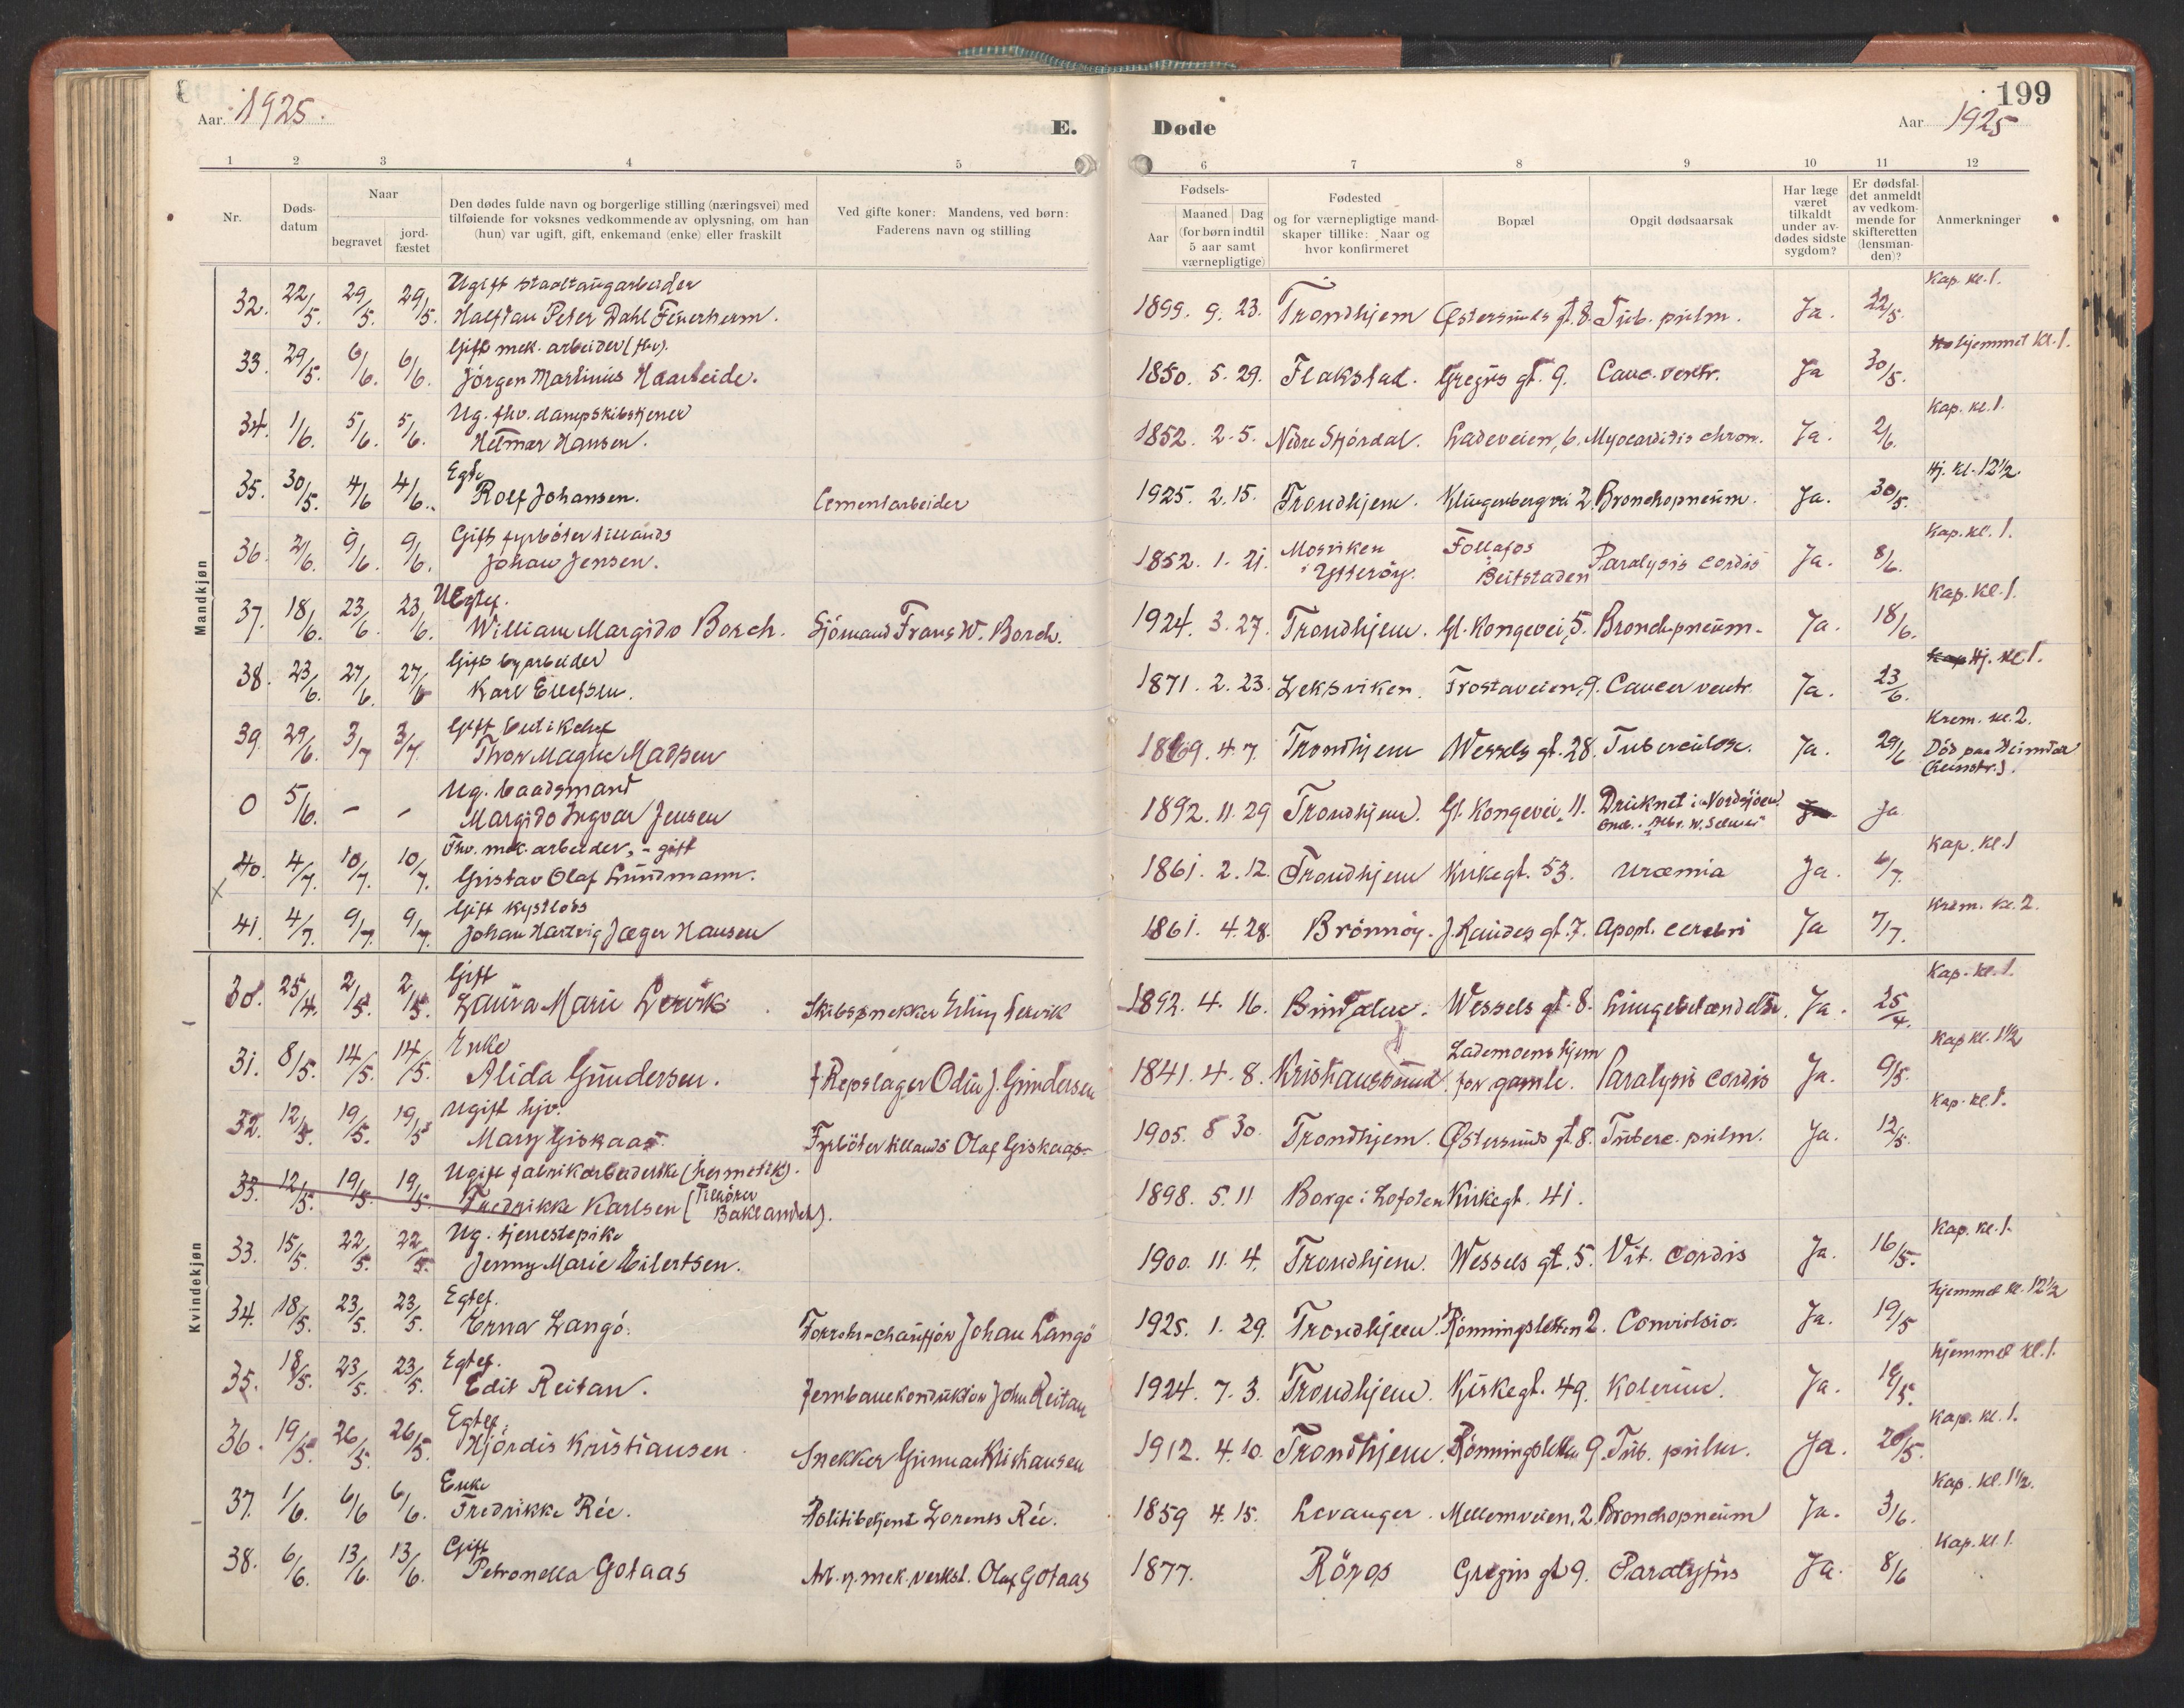 199
Aar. 1925.
E. Døde
Aar 1925
1 2 3 4 5 6 7 8 9 10 11 12
Nr.
Døds-datum
Naar
begravet
jord-fæstet
Den dødes fulde navn og borgerlige stilling (næringsvei) med
tilføiende for voksnes vedkommende av oplysning, om han
(hun) var ugift, gift, enkemand (enke) eller fraskilt
Ved gifte koner: Mandens, ved børn:
Faderens navn og stilling
Fødsels-
Aar
Maaned Dag
(for børn indtil
5 aar samt
værnepligtige)
Fødested
og for værnepligtige mand-
skaper tillike: Naar og
hvor konfirmeret
Bopæl
Opgit dødsaarsak
Har læge
været
tilkaldt
under av-
dødes sidste
sygdom?
Er dødsfal-
det anmeldt
av vedkom-
mende for
skifteretten
(lensman-
den)?
Anmerkninger
Mandkjøn
Ugift staaltaugarbeider Kap. kl. 1.
32. 22/5. 29/5. 29/5. Halfdan Peter Dahl Feuerherm. 1899. 9. 23. Trondhjem Østersunds gt. 8. Tub. pulm. Ja. 22/5.
Gift mek. arbeider (fhv). hjemmet kl. 1.
33. 29/5. 6/6. 6/6. Jörgen Martinius Haarbeide. 1850. 5. 29. Flakstad. Gregus gt. 9. Canc. ventr. Ja 30/5.
Ug. fhv. dampskibstjener Kap. kl. 1.
34. 1/6. 5/6. 5/6. Helmar Hansen. 1852. 2. 5. Nedre Stjördal. Ladeveien, 6. Myocarditis chron. Ja. 2/6.
Egte Hj. kl. 12½.
35. 30/5. 4/6 4/6. Rolf Johansen. Cementarbeider 1925. 2. 15. Trondhjem. Klingenbergvei 2. Bronchopneum. Ja. 30/5.
Gift fyrböter tillands Kap. kl. 1.
36. 2/6. 9/6. 9/6. Johan Jensen. 1852. 1. 21. Mosviken i Ytteröy. Follafos Beitstaden Paralysis cordis Ja. 8/6.
UEgtef. Kap. kl. 1.
37. 18/6. 23/6. 23/6. William Margido Borch. Sjömand Frans W. Borch. 1924. 3. 27. Trondhjem. Gl. Kongevei, 5. Bronchpneum. Ja. 18/6.
Gift byarbeider Kap Hj. kl 1.
38. 23/6. 27/6. 27/6 Karl Ellefsen. 1871. 2. 23. Leksviken. Frostaveien, 9. Cancer ventr. Ja. 23/6.
Gift butikchef Krem. kl. 2.
39. 29/6. 3/7 3/7. Thor Magne Madsen 1869. 4. 7. Trondhjem Wessels gt. 28. Tuberculose. Ja. 29/6 Död paa Heimdal
Ug. baadsmand
0 5/6. - - Margido Ingvar Jensen 1892. 11. 29 Trondhjem. Gl. Kongevei, 11. Druknet i Nordsjöen. Ja Ja
Fhv. mek. arbeider, - gift Kap. kl. 1
40. 4/7. 10/7. 10/7. Gustav Olaf Lundmann. 1861. 2. 12. Trondhjem Kirkegt. 53. Uræmia Ja. 6/7.
Gift kystlods Krem. kl. 2.
41. 4/7. 9/7. 9/7. Johan Hartvig Jæger Hansen 1861. 4. 28. Brönnöy. J. Raudes gt. 7. Apopl. cerebri Ja 7/7.
Kvindekjøn
Gift Kap. kl. 1.
30. 25/4. 2/5. 2/5. Laura Marie Lervik Skibssnekker Erling Lervik 1892. 4. 16. Bindalen. Wessels gt. 8. Lungebetændelse. Ja. 25/4.
Enke Kap kl. 1½
31. 8/5. 14/5. 14/5. Alida Gundersen. f. Repslager Odin J. Gundersen 1841. 4. 8. Kristianssund. Lademoens hjem for gamle. Paralysis cordis Ja. 9/5.
Ugift hjv. Kap. kl. 1.
32. 12/5. 19/5. 19/5 Mary Giskaas. Fyrböter tillands Olaf Giskaas 1905. 8 30. Trondhjem. Østersunds gt. 8. Tuberc. pulm. Ja. 12/5.
Ugift fabrikarbeiderske (hermetik).
33. 12/5. 19/5. 19/5. Fredrikke Karlsen (Tilhörer Baklandet). 1898. 5. 11 Borge i Lofoten Kirkegt. 41.
Ug. tjenestepike Kap. kl. 1.
33. 15/5. 22/5. 22/5. Jenny Marie Eilertsen. 1900. 11. 4. Trondhjem. Wessels gt. 5. Vit. cordis Ja. 16/5.
Egtef. hjemmet kl. 12½
34. 18/5. 23/5. 23/5. Erna Langö. chaufför Johan Langö 1925. 1. 29. Trondhjem. Rönningsletten 2. Convulsio. Ja. 19/5
Egtef. hjemmet kl. 1.
35. 18/5. 23/5. 23/5. Edit Reitan. Jernbanekonduktör John Reitan 1924. 7. 3. Trondhjem. Kirkegt. 49. Kolerine. Ja. 19/5.
Egtef. Kap. kl. 1.
36. 19/5. 26/5. 26/5. Hjördis Kristiansen. Snekker Gunnar Kristiansen 1912. 4. 10. Trondhjem. Rönningsletten 9. Tub. pulm. Ja. 20/5.
Enke Kap. kl. 1½.
37. 1/6. 6/6 6/6. Fredrikke Rée. Politibetjent Lorents Rée. 1859 4. 15. Levanger. Mellemveien, 2. Bronchopneum Ja. 3/6.
Gift Kap. kl. 1.
38. 6/6. 13/6. 13/6. Petronella Gotaas Arb. v. mek. verkst. Olaf Gotaas 1877. Röros Gregus gt 9. Paralysis Ja. 8/6